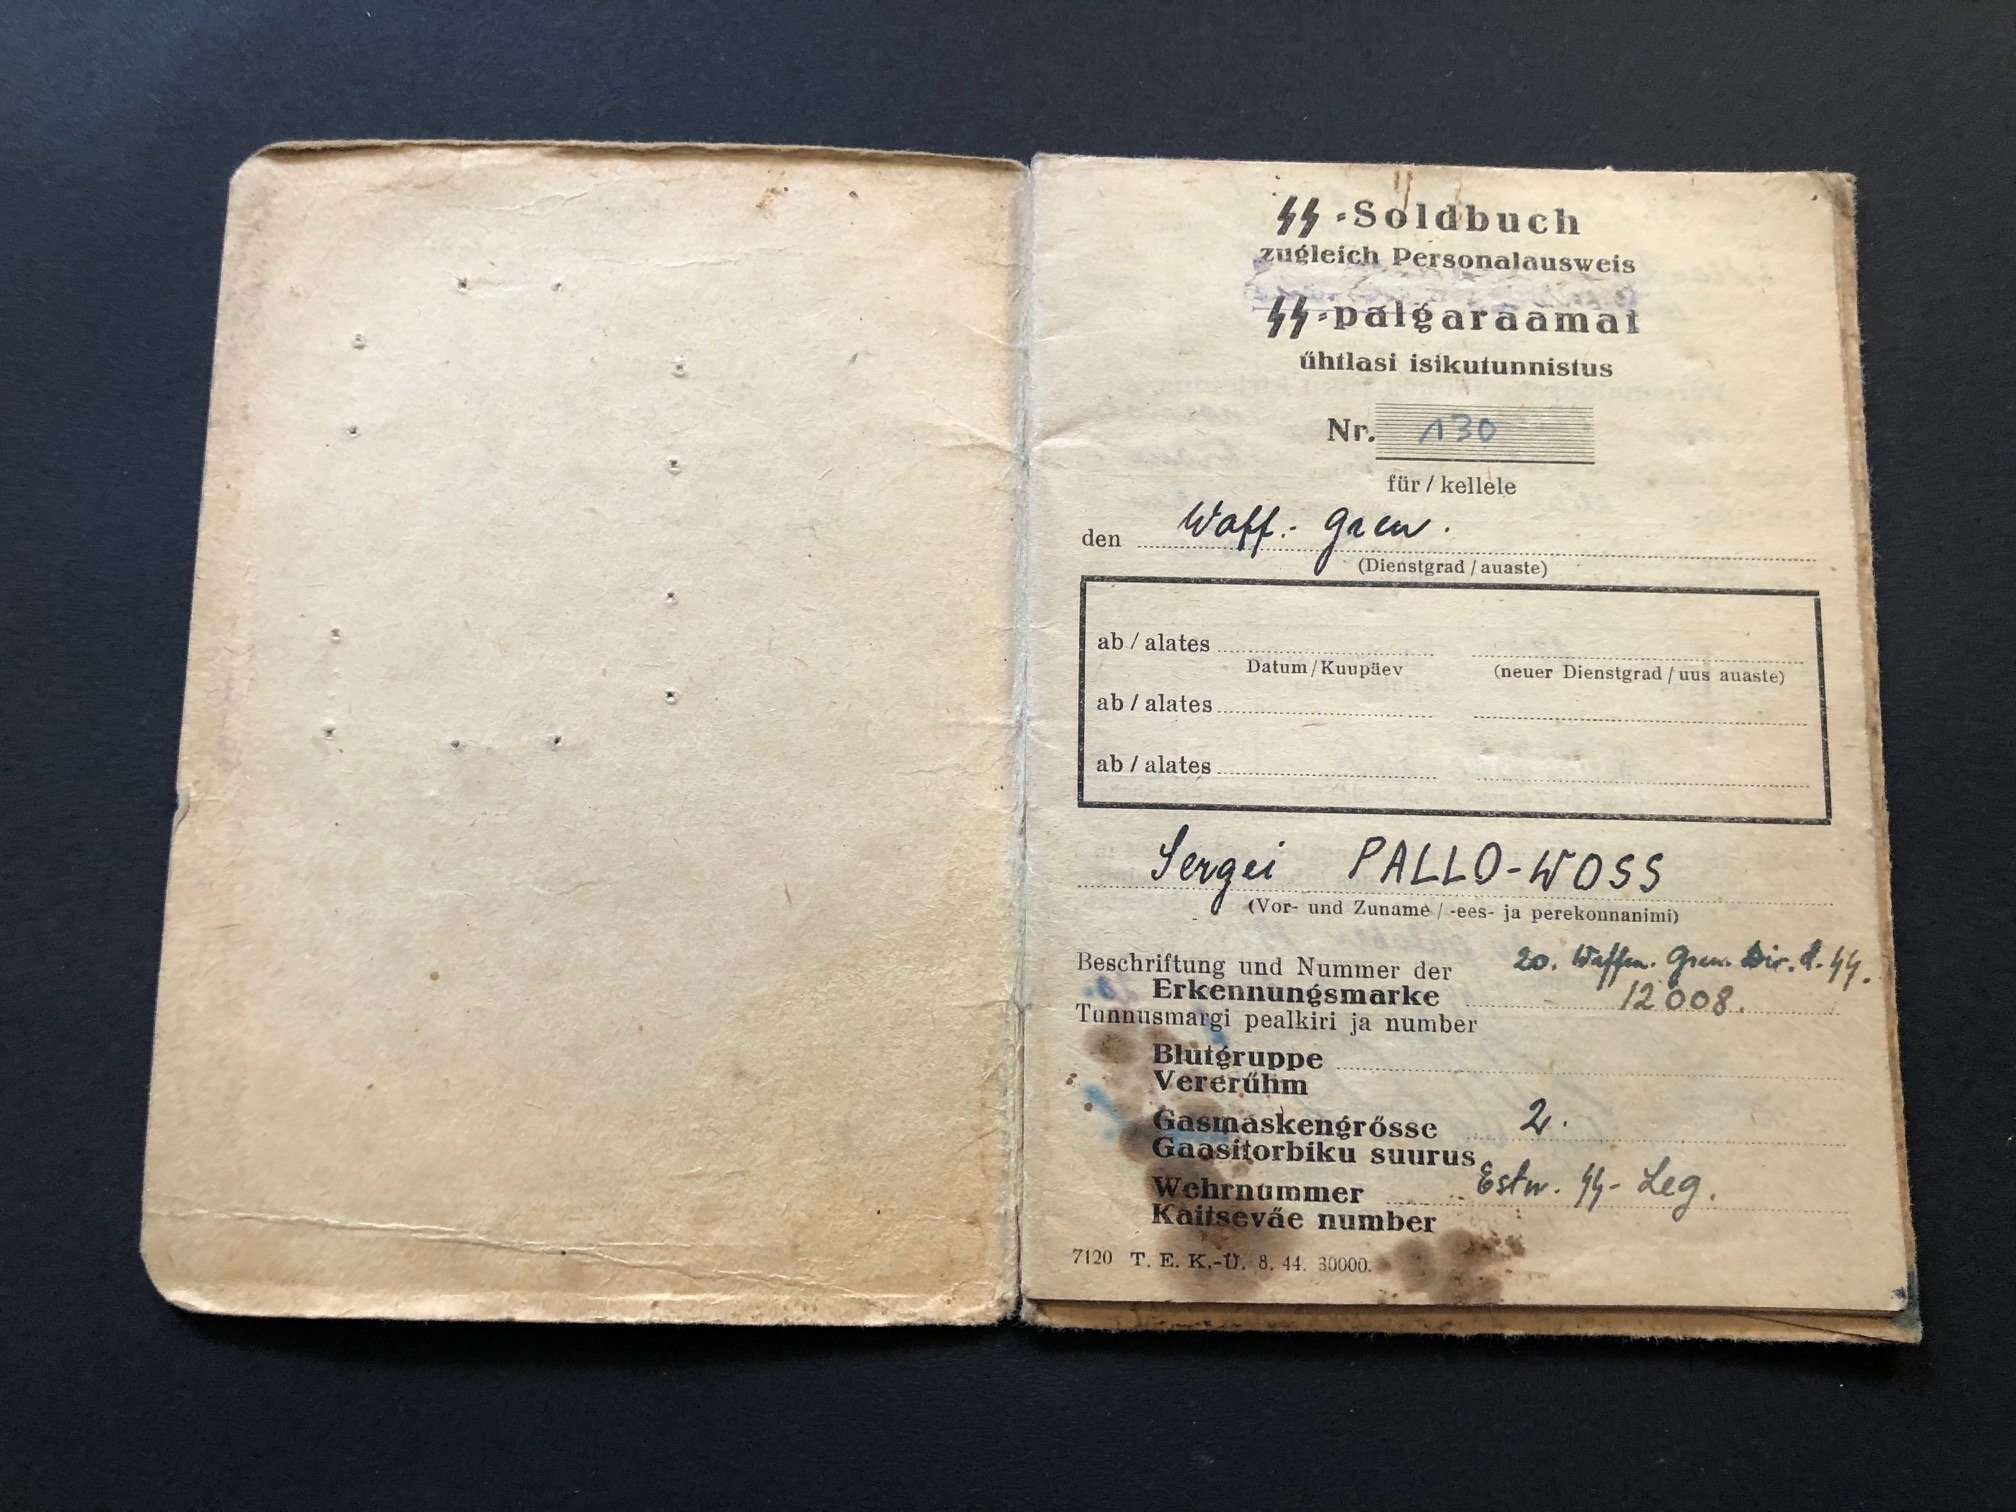 ᛋᛋ-Soldbuch
zugleich Personalausweis
ᛋᛋ-palgaraamat
űhtlasi isikutunnistus
Nr. 130
für / kellele
den Waff.- Gren.
(Dienstgrad / auaste)
ab / alates
Datum/Kuupäev (neuer Dienstgrad / uus auaste)
ab / alates
ab / alates
Sergei PALLO-WOSS
(Vor- und Zuname / -ees- ja perekonnanimi)
Beschriftung und Nummer der 20. Waffen. Gren. Div. d. ᛋᛋ.
Erkennungsmarke 12008.
Tunnusmargi pealkiri ja number
Blutgruppe
Vererűhm
Gasmaskengrősse 2.
Gaasitorbiku suurus
Wehrnummer Estn. ᛋᛋ- Leg.
Kaitseväe number
7120 T. E. K.-Ü. 8. 44. 30000.